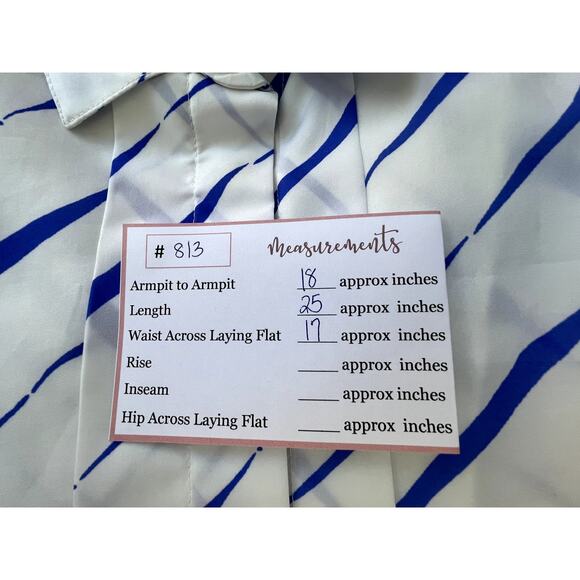 # 813
Measurements
Armpit to Armpit 18 approx inches
Length 25 approx inches
Waist Across Laying Flat 17 approx inches
Rise ____ approx inches
Inseam ____ approx inches
Hip Across Laying Flat ____ approx inches